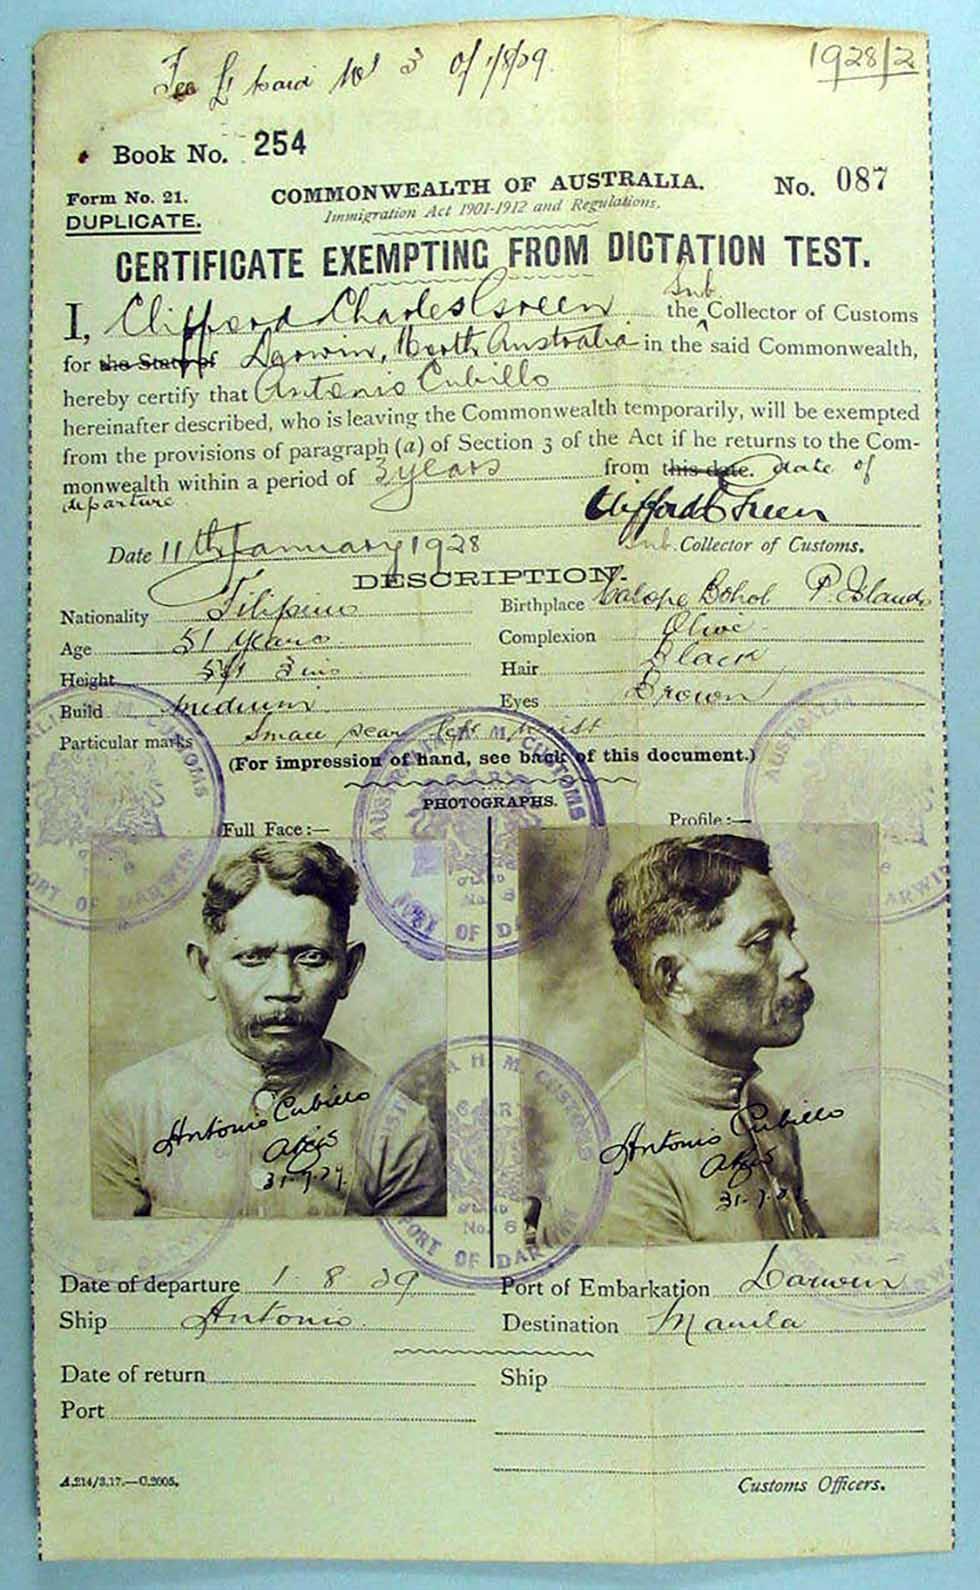 Fee £1 paid No 3 of 1/8/29.
1928/2
Book No. 254
Form No. 21.
DUPLICATE.
COMMONWEALTH OF AUSTRALIA.
No. 087
Immigration Act 1901-1912 and Regulations.
CERTIFICATE EXEMPTING FROM DICTATION TEST.
Sub
I, Clifford Charles Green the Collector of Customs
for the State of Darwin, North Australia in the said Commonwealth,
hereby certify that Antonio Cubillo
hereinafter described, who is leaving the Commonwealth temporarily, will be exempted
from the provisions of paragraph (a) of Section 3 of the Act if he returns to the Com-
monwealth within a period of 3 years from this date. date of
departure
Clifford C Green
Date 11th January 1928
Sub. Collector of Customs.
DESCRIPTION.
Nationality Filipino
Birthplace Calope Bohol P. Islands
Age 51 years
Complexion Olive
Height 5ft 3 ins
Hair Black
Build medium
Eyes Brown
Particular marks small scar left wrist
(For impression of hand, see back of this document.)
PHOTOGRAPHS.
Full Face:—
Profile:—
AUSTRALIA H. M. CUSTOMS
No. 6
PORT OF DARWIN
Antonio Cubillo
31.7.29
Antonio Cubillo
31.7.
Date of departure 1 8 29
Port of Embarkation Darwin
Ship Antonio
Destination Manila
Date of return
Ship
Port
A.214/3.17.—C.2005.
Customs Officers.